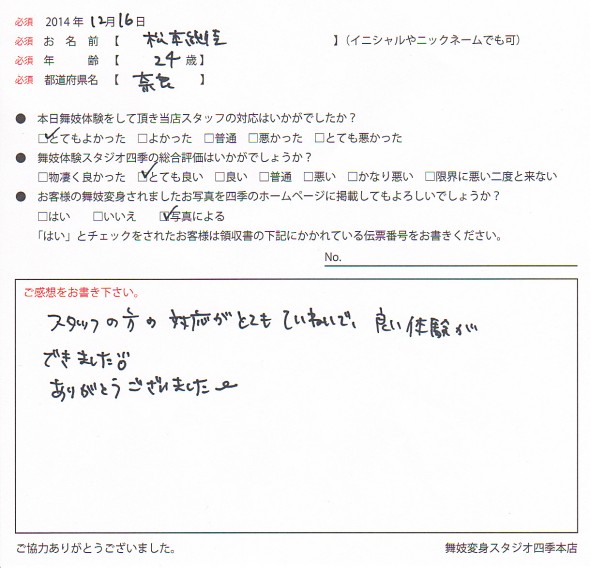 必須 2014年 12月16日
必須 お名前【 松本 】(イニシャルやニックネームでも可)
必須 年齢【 24 歳】
必須 都道府県名【 奈良 】
● 本日舞妓体験をして頂き当店スタッフの対応はいかがでしたか?
☑とてもよかった □よかった □普通 □悪かった □とても悪かった
● 舞妓体験スタジオ四季の総合評価はいかがでしょうか?
□物凄く良かった ☑とても良い □良い □普通 □悪い □かなり悪い □限界に悪い二度と来ない
● お客様の舞妓変身されましたお写真を四季のホームページに掲載してもよろしいでしょうか?
□はい □いいえ ☑写真による
「はい」とチェックをされたお客様は領収書の下記にかかれている伝票番号をお書きください。
No.
ご感想をお書き下さい。
スタッフの方の対応がとてもていねいで、良い体験が
できました
ありがとうございました
ご協力ありがとうございました。
舞妓変身スタジオ四季本店